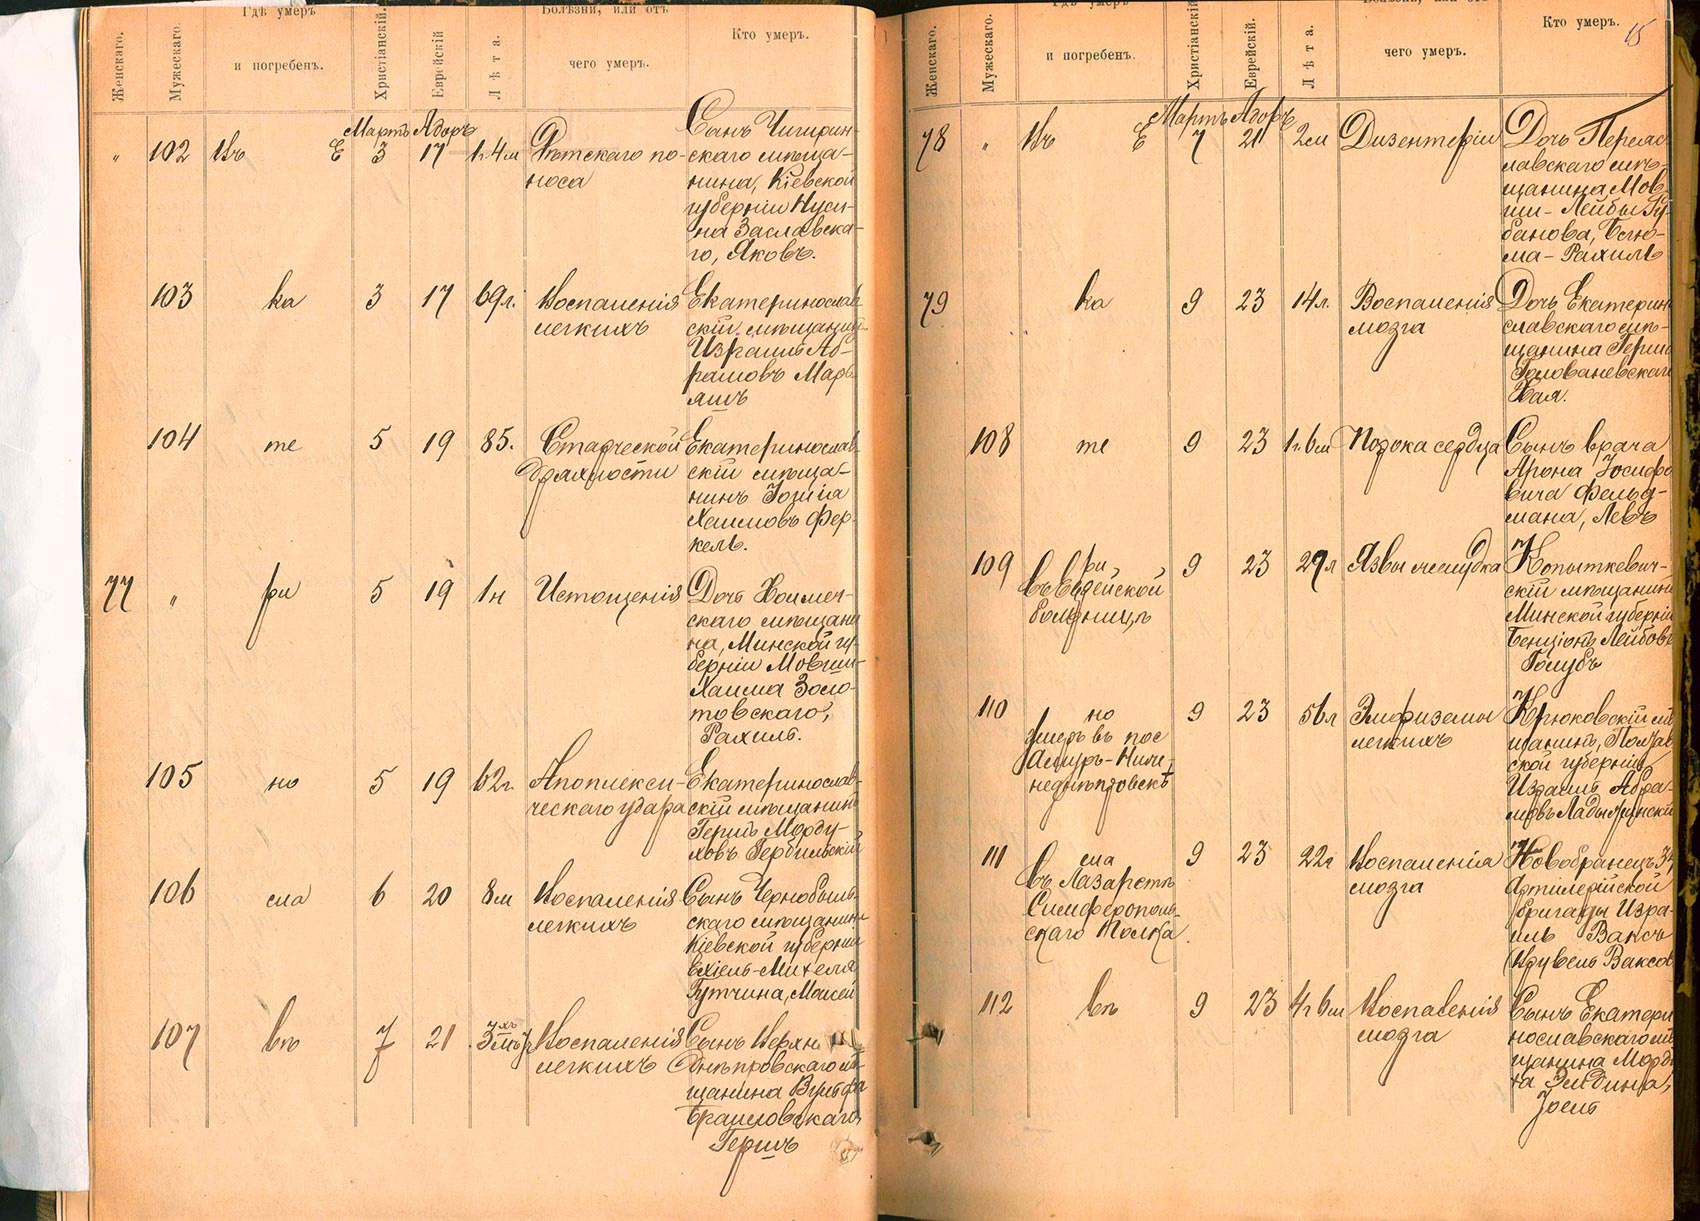 Женскаго.
Мужескаго
Гдѣ умеръ
и погребенъ.
Христіанскій.
Еврейскій
Лѣта.
Болѣзни, или отъ
чего умеръ.
Кто умеръ.
Мартъ Адоръ
„ 102 Въ Е 3 17 1г.4м Дѣтскаго по-
носа
Сынъ Чигирин-
скаго мѣща-
нина, Кіевской
губерніи Нуси-
на Заславска-
го, Яковъ.
103 ка 3 17 69л. Воспаленія
легкихъ
Екатеринослав
скій мѣщанинъ
Израиль Аб-
рамовъ Марь
яшъ
104 те 5 19 85. Старческой
дряхлости
Екатеринослав-
скій мѣща-
нинъ
Хаимовъ Фер-
кель.
77 „ ри 5 19 1н Истощенія
Дочь
скаго мѣщани
на, Минской гу-
берніи Мовши-
Хаима Золо-
товскаго,
Рахиль.
105 но 5 19 62г. Апоплекси-
ческаго удара
Екатеринослав-
скій мѣщанинъ
Гершъ Морду-
ховъ Гербильскій
106 сла 6 20 8м Воспаленія
легкихъ
Сынъ Чернобыль-
скаго мѣщанина
Кіевской губерніи
Ехіель-Михеля
Гутчина, Моисей
107 въ 7 21 Воспаленія
легкихъ
Сынъ Верхне
Днѣпровскаго мѣ-
щанина Вульфа
Браиловскаго,
Гершъ
Женскаго.
Мужескаго.
Гдѣ умеръ
и погребенъ.
Христіанскій
Еврейскій.
Лѣта.
Болѣзни, или отъ
чего умеръ.
Кто умеръ.
15
Мартъ Адоръ
78 „ Въ Е 7 21 2м Дизентеріи
Дочь Переяс
лавскаго мѣ-
щанина Мов
ши-Лейбы Гу-
банова,
Рахиль
79 ка 9 23 14л. Воспаленія
мозга
Дочь Екатерин
славскаго мѣ-
щанина Герша
Голованевскаго
Хая.
108 те 9 23 1г.6м Порока сердца
Сынъ врача
Арона Іосифо
вича Фельд-
мана, Левъ
109 ри 9 23 27л Язвы желудка
въ Еврейской
больницѣ
Копыткевич-
скій мѣщанинъ
Минской губерніи
Бенціонъ Лейбовъ
Голубъ
110 но 9 23 56л Эмфиземы
легкихъ
умеръ въ пос
Амуръ-Нижне-
недѣпровскъ
Крюковскій мѣ
щанинъ, Полтав
ской губерніи
Израиль Абра-
мовъ Ладыжинскій
111 сла 9 23 22г Воспаленія
мозга
въ Лазаретѣ
Симферополь-
скаго Полка.
Новобранецъ 34
Артиллерійской
бригады Изра-
иль Ваксъ
112 въ 9 23 4г6м Воспаленія
мозга
Сынъ Екатери
нославскаго мѣ
щанина Морду
ха Эйдина,
Іоель